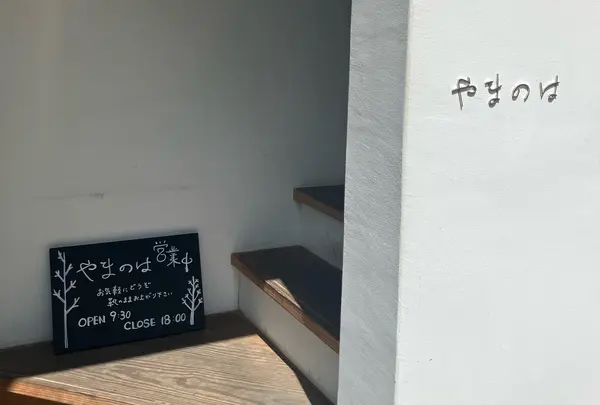 やまのは
営業中
やまのは
お気軽にどうぞ
靴のままお上がり下さい
OPEN 9:30
CLOSE 18:00